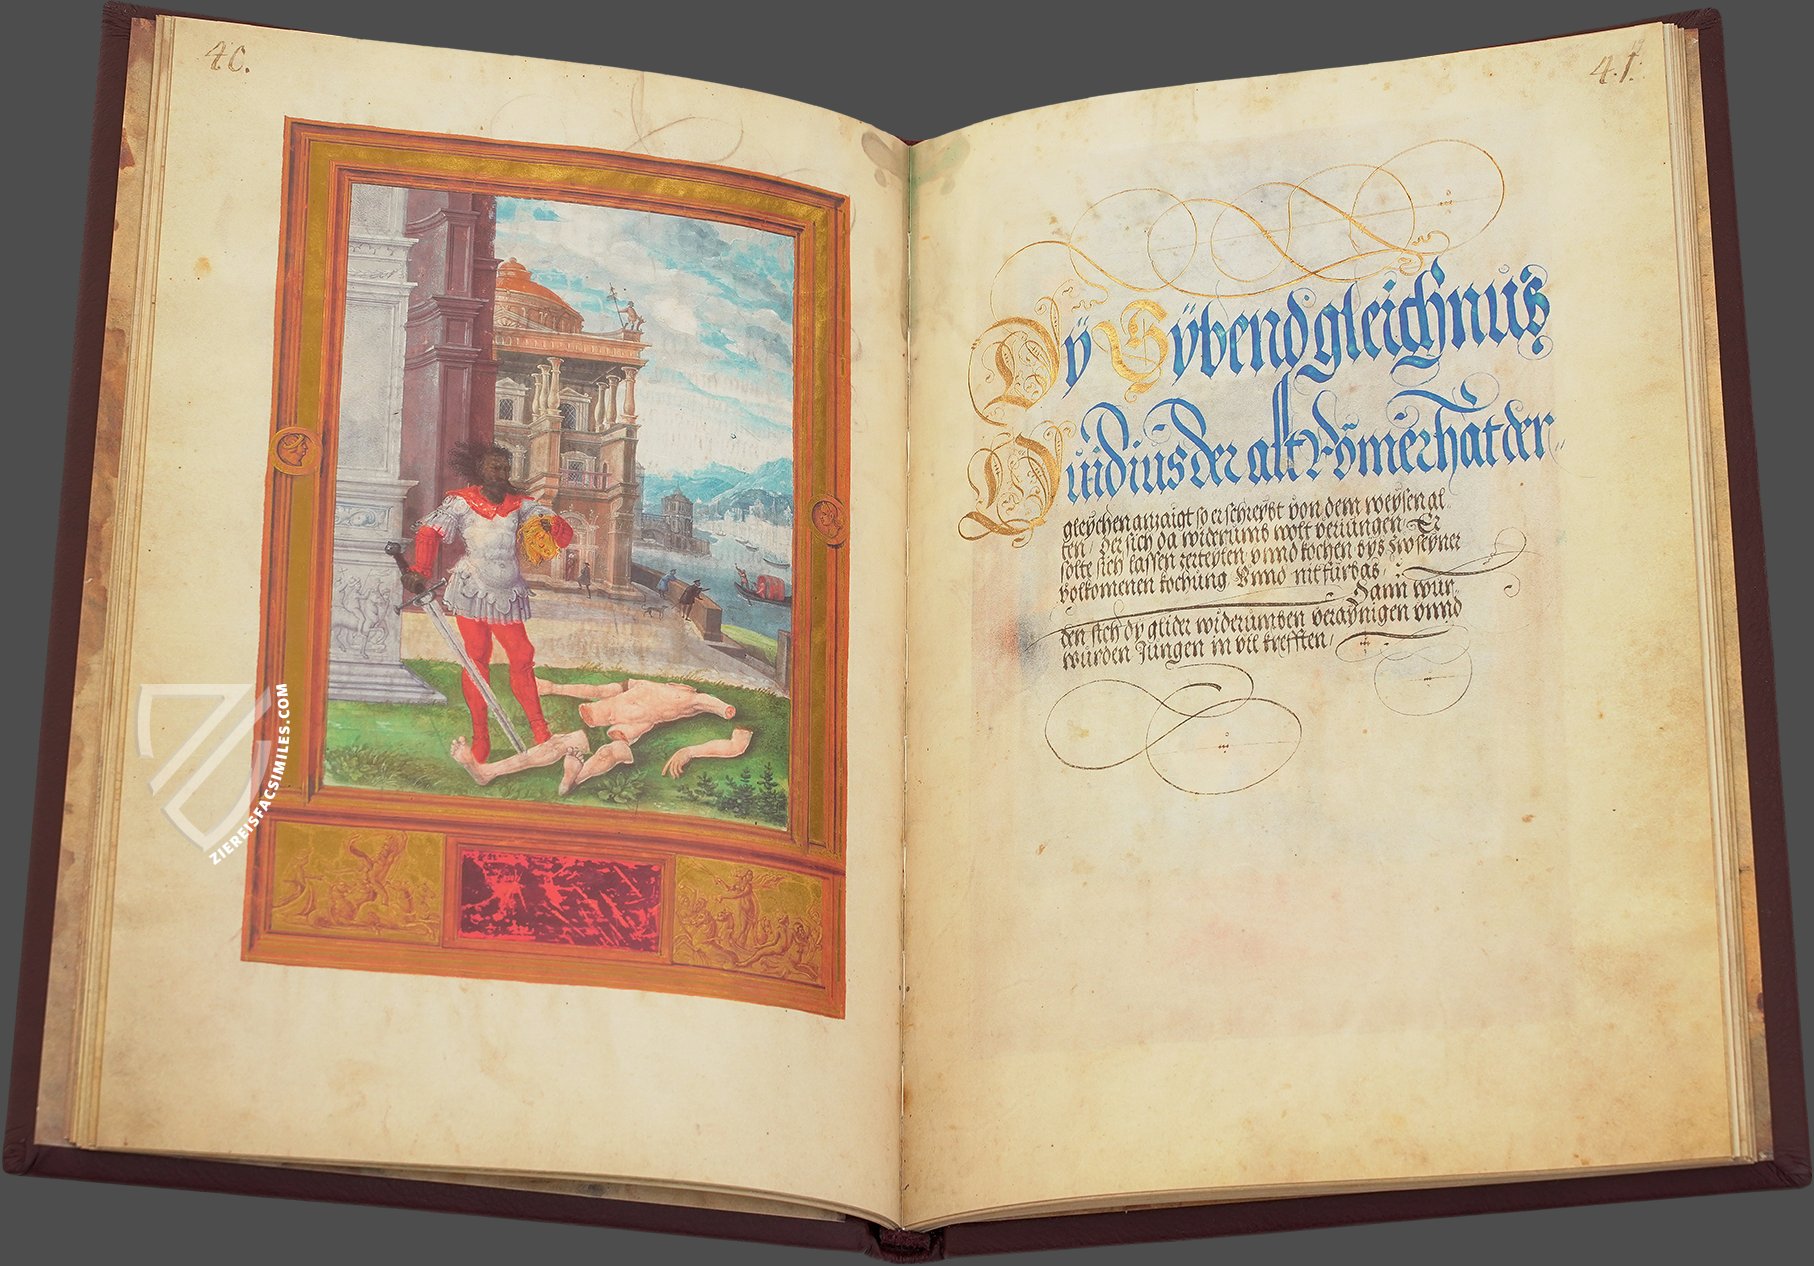 40.
ZIEREISFACSIMILES.COM
41.
Dÿ Sÿbend gleichnus
Ouidius der alt Römer hat der
gleychen anzaigt so er schreybt von dem weysen al
ten / der sich da widerumb wolt veriungen Er
solte sich lassen zerteylen vnnd kochen bys zw seyner
volkomenen kochung Vnnd nit fürbas /
Dann wur
den sich dy glider widerumben veraynigen vnnd
wurden Jungen in vil krefften /